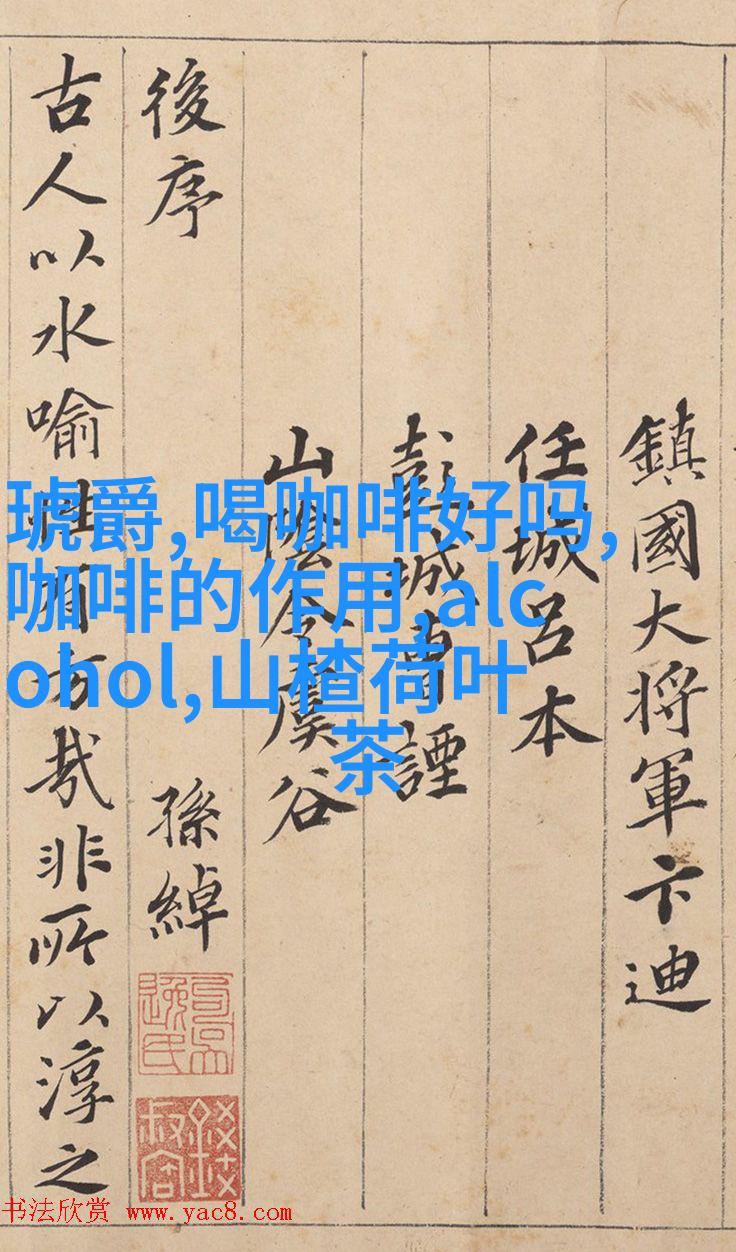 鎮國大将軍卞迪
任城呂本
彭城曹諲
山陰令虞谷
後序 孫綽
古人以水喻性有旨哉非所以淳之
琥爵,喝咖啡好吗,
咖啡的作用,alc
ohol,山楂荷叶
茶
书法欣赏 www.yac8.com